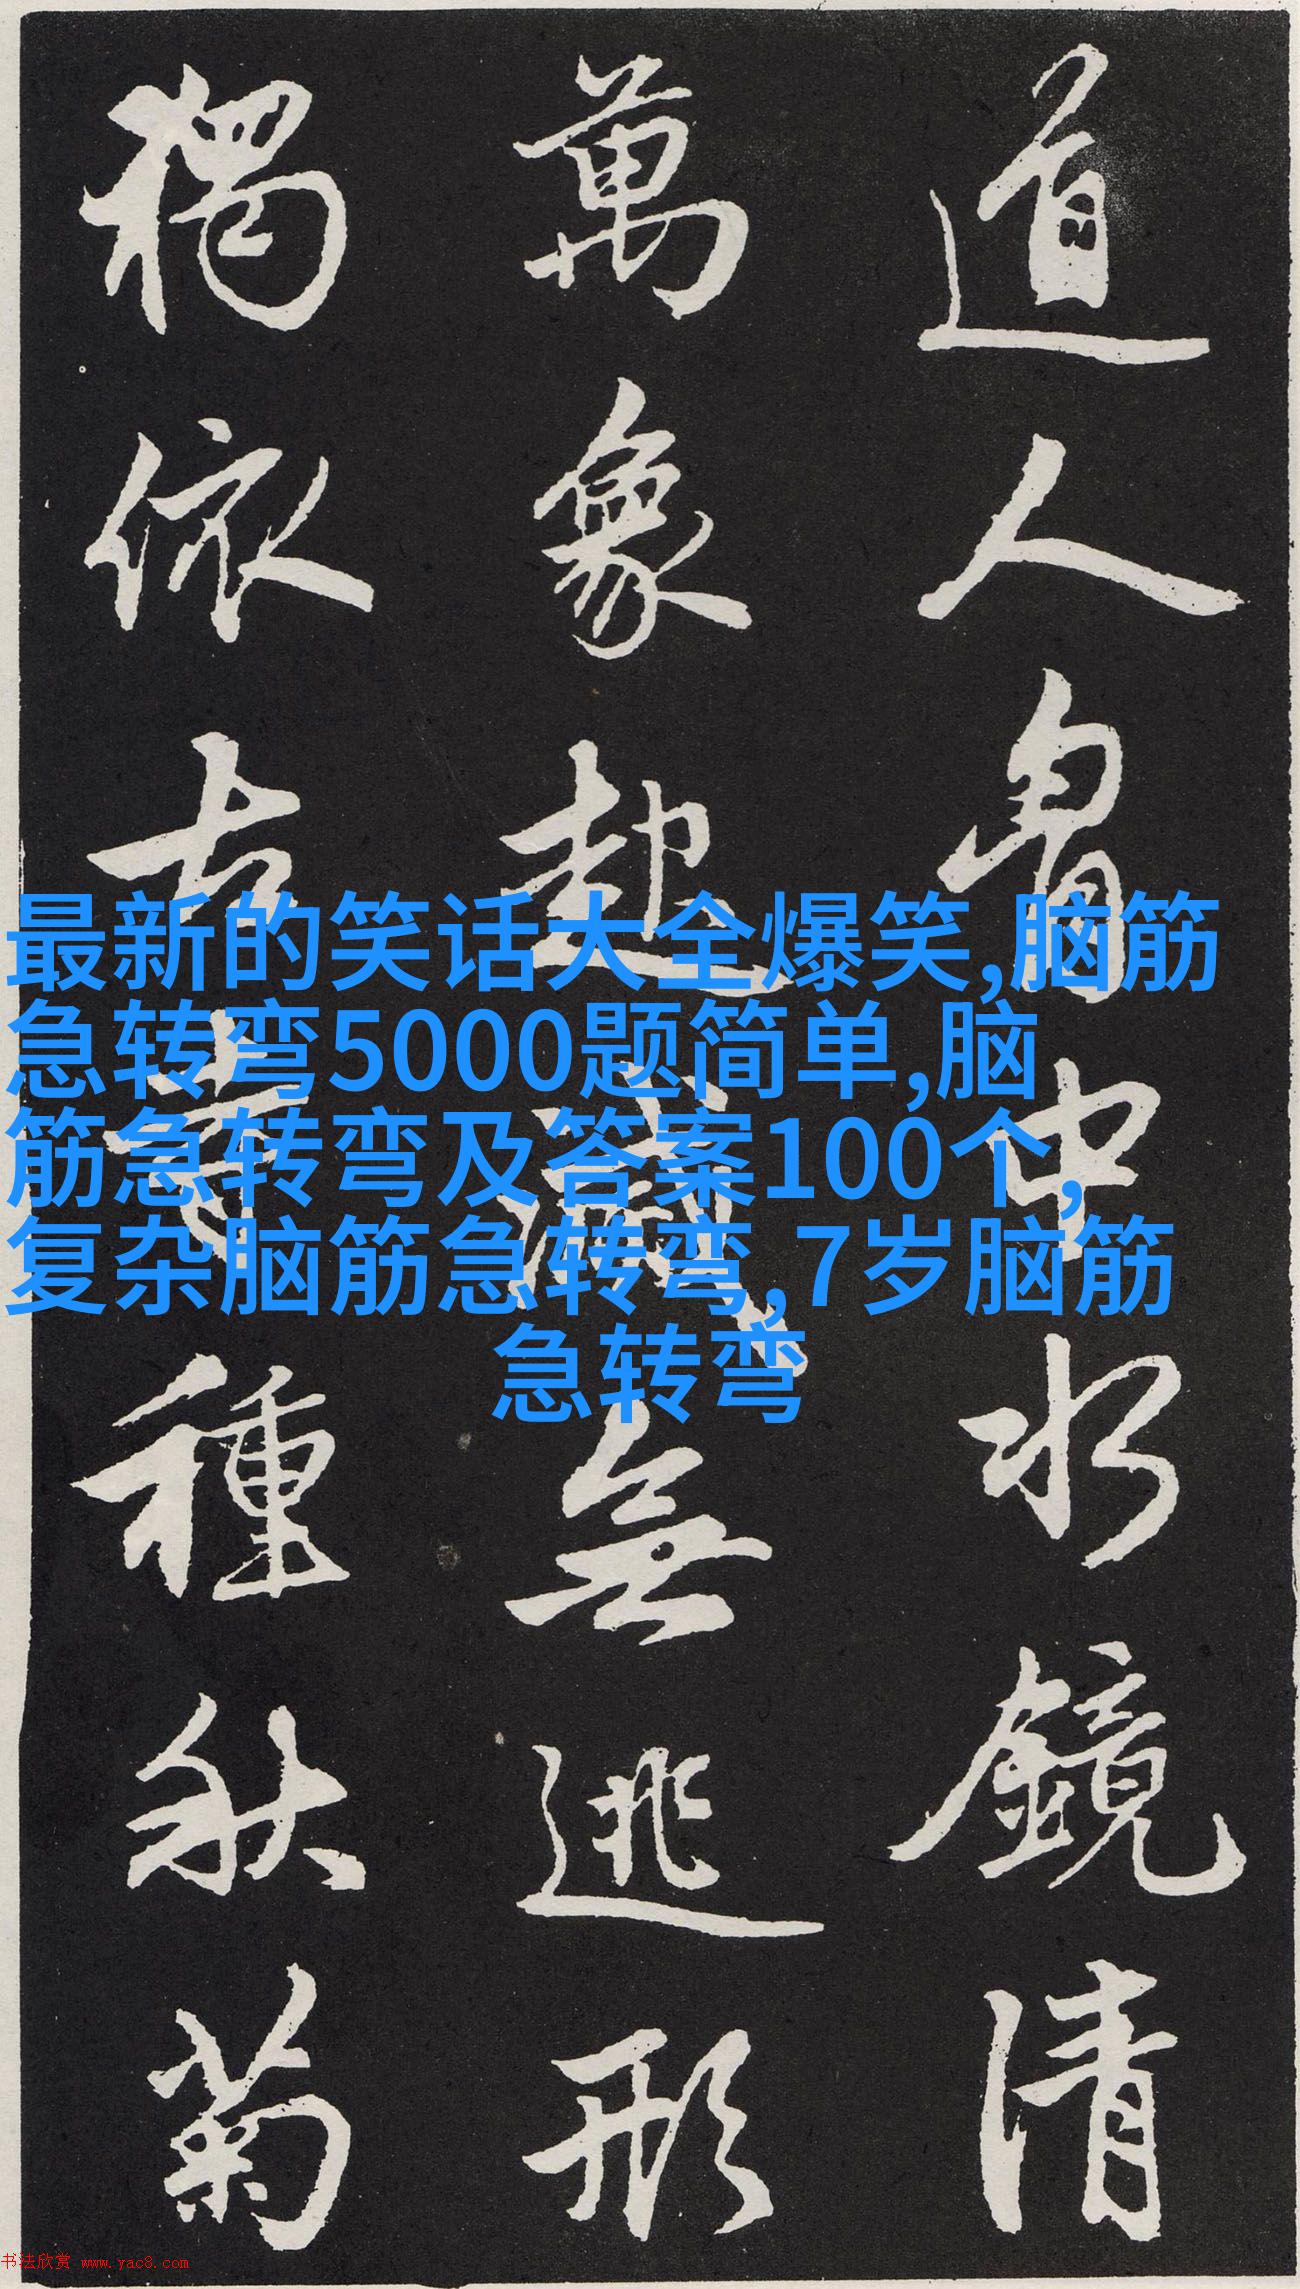 道人胷中水鏡清
萬象起滅無逃形
獨依古寺種秋菊
最新的笑话大全爆笑,脑筋
急转弯5000题简单,脑
筋急转弯及答案100个,
复杂脑筋急转弯,7岁脑筋
急转弯
书法欣赏 www.yac8.com